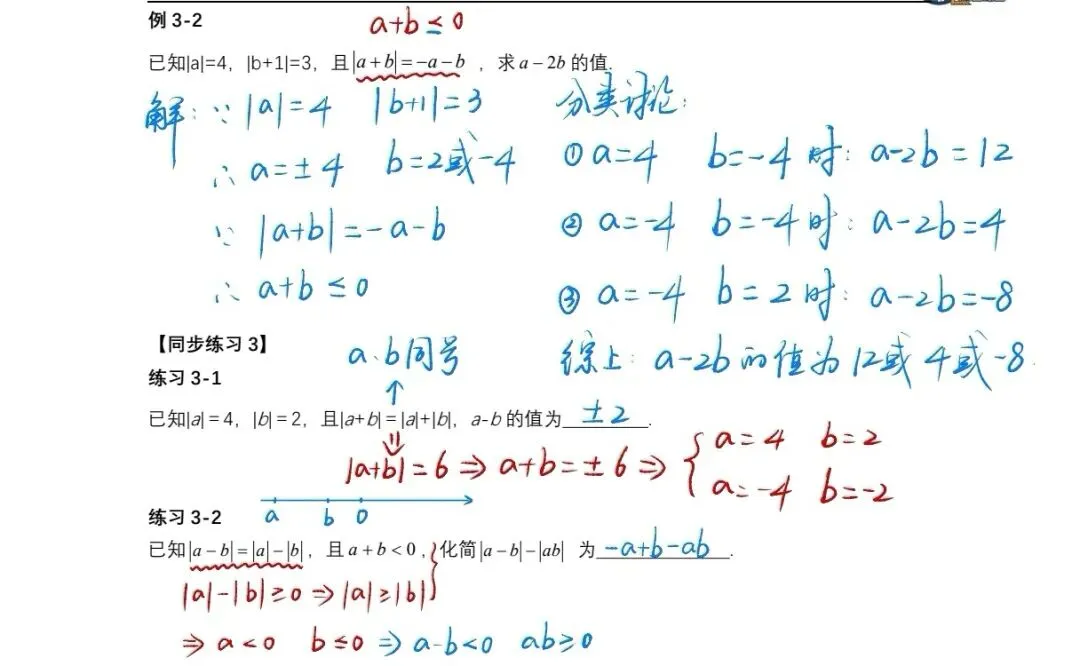 例 3-2
a+b≤0
已知|a|=4，|b+1|=3，且|a+b|=-a-b ，求 a-2b 的值.
解：∵ |a|=4 |b+1|=3
∴ a=±4 b=2或-4
∵ |a+b|=-a-b
∴ a+b≤0
分类讨论：
① a=4 b=-4 时：a-2b=12
② a=-4 b=-4 时：a-2b=4
③ a=-4 b=2 时：a-2b=-8
综上：a-2b 的值为 12或 4或-8.
【同步练习 3】
a、b同号
练习 3-1
已知|a|=4，|b|=2，且|a+b|=|a|+|b|，a-b 的值为 ±2 .
|a+b|=6 ⇒ a+b=±6 ⇒ { a=4 b=2
a=-4 b=-2
a b 0
练习 3-2
已知|a-b|=|a|-|b| ，且 a+b<0，化简|a-b|-|ab| 为 -a+b-ab .
|a|-|b|≥0 ⇒ |a|≥|b|
⇒ a<0 b≤0 ⇒ a-b<0 ab≥0